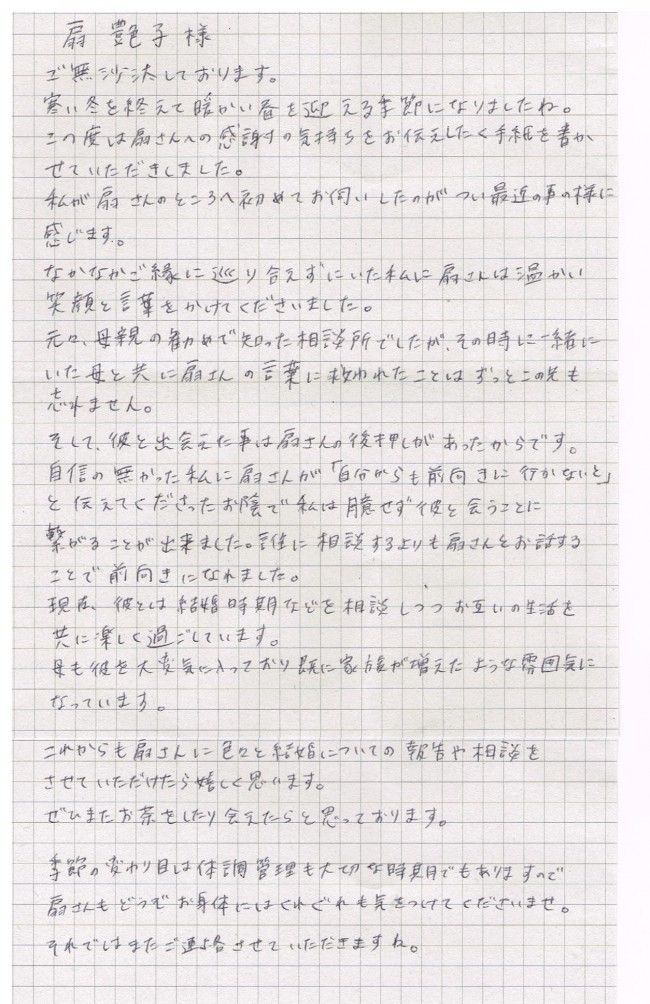 扇 艶子 様
ご無沙汰しております。
寒い冬を終えて暖かい春を迎える季節になりましたね。
この度は扇さんへの感謝の気持ちをお伝えしたく手紙を書か
せていただきしました。
私が扇さんのところへ初めてお伺いしたのがつい最近の事の様に
感じます。
なかなかご縁に巡り合えずにいた私に扇さんは温かい
笑顔と言葉をかけてくださいました。
元々、母親の勧めで知った相談所でしたが、その時に一緒に
いた母と共に扇さんの言葉に救われたことはずっとこの先も
忘れません。
そして、彼と出会えた事は扇さんの後押しがあったからです。
自信の無かった私に扇さんが「自分からも前向きに行かないと」
と伝えてくださったお陰で私は臆せず彼と会うことに
繋がることが出来ました。誰に相談するよりも扇さんとお話する
ことで前向きになれました。
現在、彼とは結婚時期などを相談しつつお互いの生活を
共に楽しく過ごしています。
母も彼を大変気に入っており既に家族が増えたような雰囲気に
なっています。
これからも扇さんに色々と結婚についての報告や相談を
させていただけたら嬉しく思います。
ぜひまたお茶をしたり会えたらと思っております。
季節の変わり目は体調管理も大切な時期でもありますので
扇さんもどうぞお身体にはくれぐれも気をつけてくださいませ。
それではまたご連絡させていただきますね。